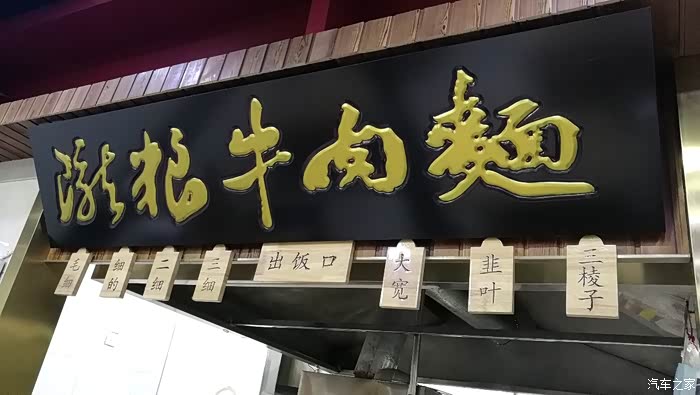 陇粮牛肉麵
毛细
细的
二细
三细
出饭口
大宽
韭叶
三棱子
汽车之家